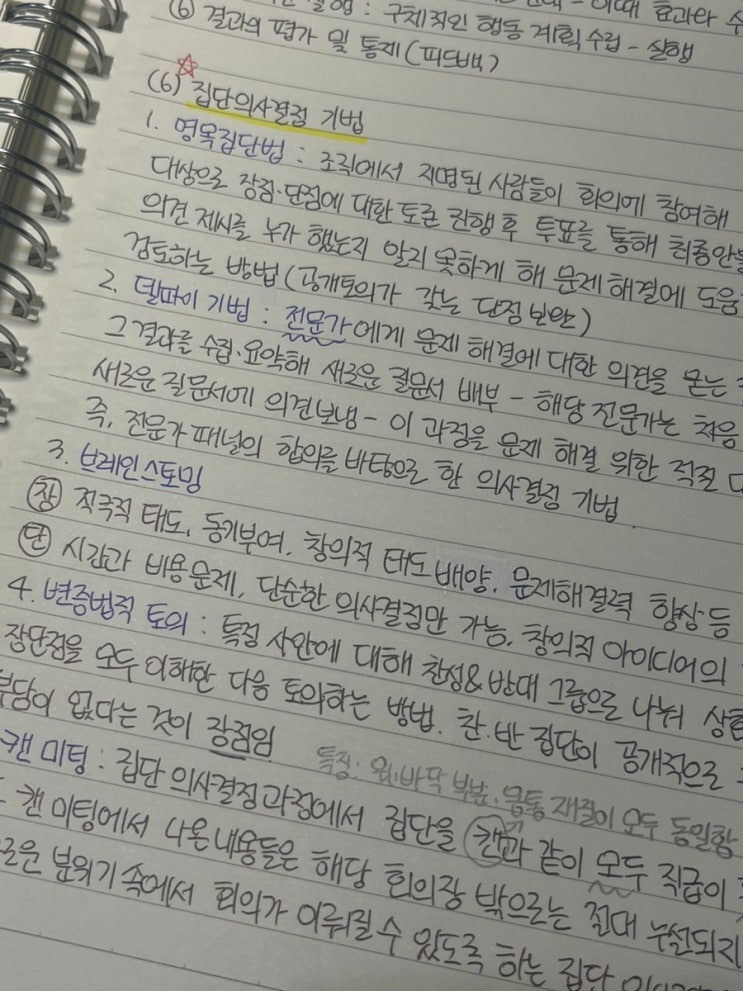 구체적인 행동 계획 수립 - 실행
⑥ 결과의 평가 및 통제 (피드백)
(6) 집단의사결정 기법
1. 명목집단법 : 조직에서 지명된 사람들이 회의에 참여해
대상으로 장점·단점에 대한 토론 진행 후 투표를 통해 최종안을
의견 제시를 누가 했는지 알지 못하게 해 문제 해결에 도움
검토하는 방법 (공개토의가 갖는 단점 보완)
2. 델파이 기법 : 전문가에게 문제 해결에 대한 의견을 묻는
그 결과를 수집·요약해 새로운 질문서 배부 - 해당 전문가는 처음
새로운 질문서에 의견보냄 - 이 과정을 문제 해결 위한 적절
즉, 전문가 패널의 합의를 바탕으로 한 의사결정 기법
3. 브레인스토밍
㉧ 적극적 태도, 동기부여, 창의적 태도 배양, 문제해결력 향상 등
㉰ 시간과 비용문제, 단순한 의사결정만 가능, 창의적 아이디어의
4. 변증법적 토의 : 특정 사안에 대해 찬성&반대 그룹으로 나눠
장단점을 모두 이해한 다음 토의하는 방법. 찬·반 집단이 공개적으로
부담이 없다는 것이 장점임
특징: 위·바닥 부분, 몸통 재질이 모두 동일함
캔 미팅 : 집단 의사결정 과정에서 집단을 캔과 같이 모두 직급이
캔 미팅에서 나온 내용들은 해당 회의장 밖으로는 절대 누설되지
분위기 속에서 회의가 이뤄질 수 있도록 하는 집단